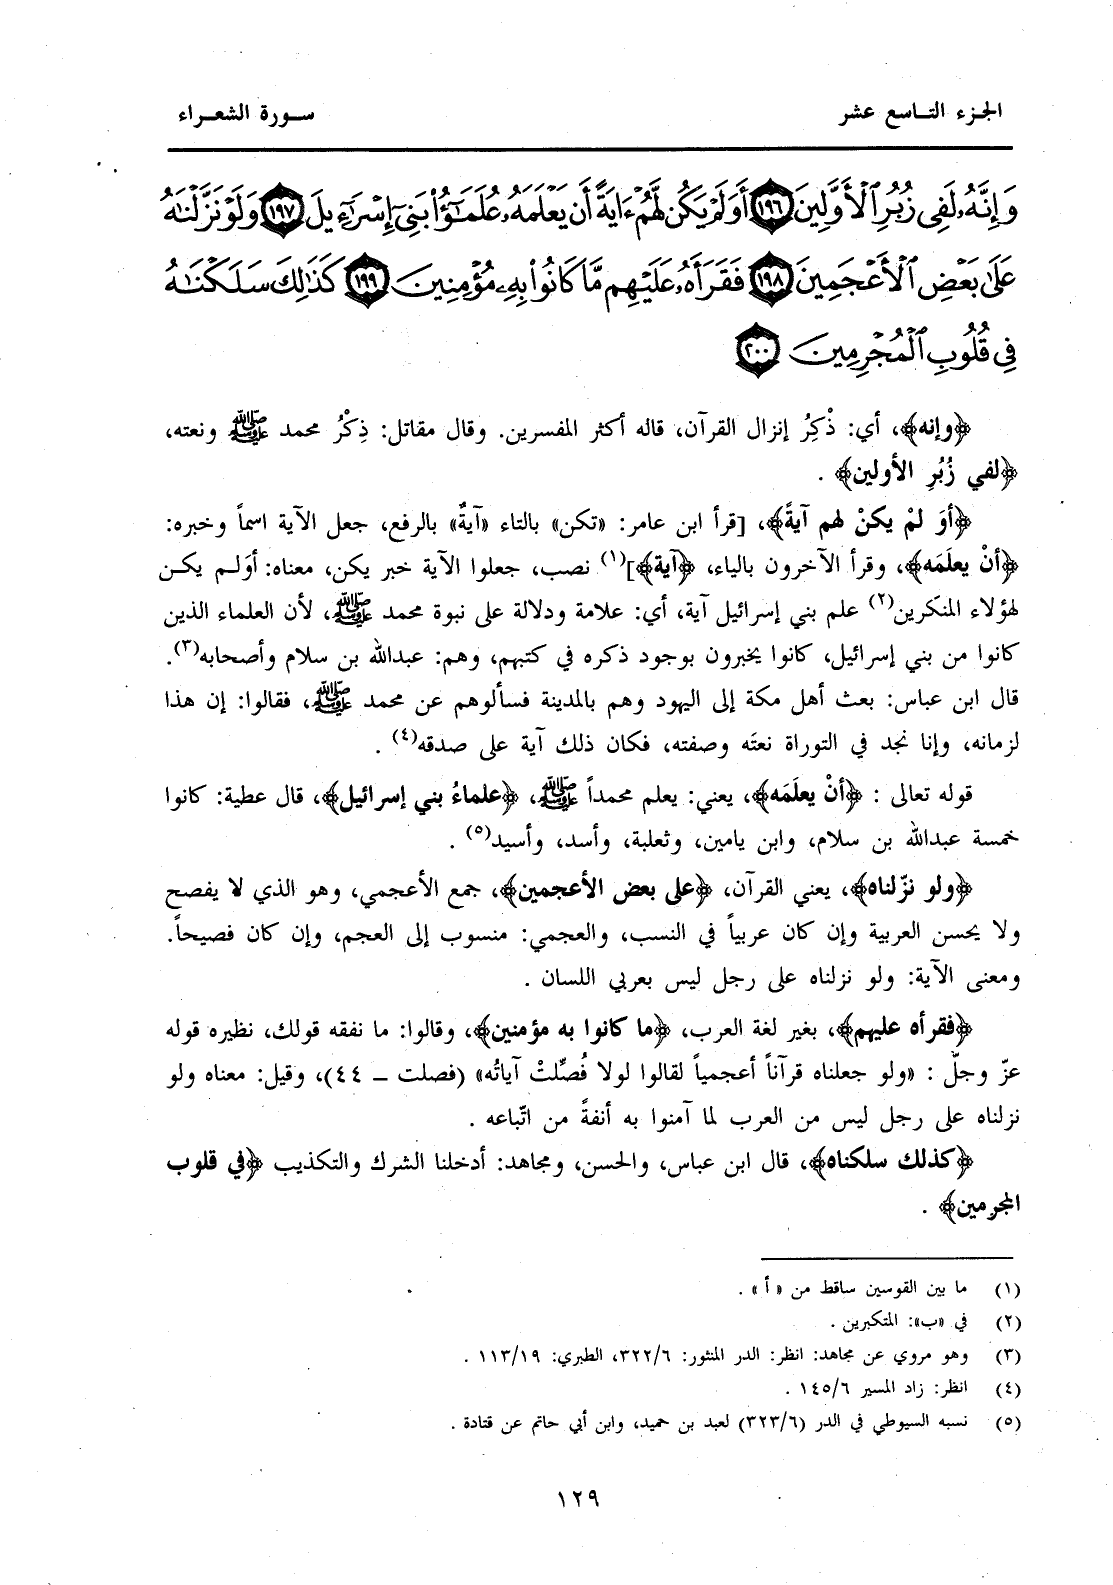 الجزء التاسع عشر
سورة الشعراء
وَإِنَّهُۥ لَفِى زُبُرِ ٱلْأَوَّلِينَ ١٩٦ أَوَلَمْ يَكُن لَّهُمْ ءَايَةً أَن يَعْلَمَهُۥ عُلَمَٰٓؤُا۟ بَنِىٓ إِسْرَٰٓءِيلَ ١٩٧ وَلَوْ نَزَّلْنَٰهُ
عَلَىٰ بَعْضِ ٱلْأَعْجَمِينَ ١٩٨ فَقَرَأَهُۥ عَلَيْهِم مَّا كَانُوا۟ بِهِۦ مُؤْمِنِينَ ١٩٩ كَذَٰلِكَ سَلَكْنَٰهُ
فِى قُلُوبِ ٱلْمُجْرِمِينَ ٢٠٠
﴿وإنه﴾، أي: ذْكِرُ إنزال القرآن، قاله أكثر المفسرين. وقال مقاتل: ذِكْرُ محمد ﷺ ونعته،
﴿لفي زُبُرِ الأولين﴾ .
﴿أوَ لمْ يكنْ لهم آيةً﴾، [قرأ ابن عامر: «تكن» بالتاء «آيةٌ» بالرفع، جعل الآية اسماً وخبره:
﴿أنْ يعلَمَه﴾، وقرأ الآخرون بالياء، ﴿آية﴾](١) نصب، جعلوا الآية خبر يكن، معناه: أوَلـم يكـن
لهؤلاء المنكرين(٢) علم بني إسرائيل آية، أي: علامة ودلالة على نبوة محمد ﷺ، لأن العلماء الذين
كانوا من بني إسرائيل، كانوا يخبرون بوجود ذكره في كتبهم، وهم: عبدالله بن سلام وأصحابه(٣).
قال ابن عباس: بعث أهل مكة إلى اليهود وهم بالمدينة فسألوهم عن محمد ﷺ، فقالوا: إن هذا
لزمانه، وإنا نجد في التوراة نعتَه وصفته، فكان ذلك آية على صدقه(٤) .
قوله تعالى : ﴿أنْ يعلَمَه﴾، يعني: يعلم محمداً ﷺ، ﴿علماءُ بني إسرائيل﴾، قال عطية: كانوا
خمسة عبدالله بن سلام، وابن يامين، وثعلبة، وأسد، وأسيد(٥) .
﴿ولو نزّلناه﴾، يعني القرآن، ﴿على بعض الأعجمين﴾، جمع الأعجمي، وهو الذي لا يفصح
ولا يحسن العربية وإن كان عربياً في النسب، والعجمي: منسوب إلى العجم، وإن كان فصيحاً.
ومعنى الآية: ولو نزلناه على رجل ليس بعربي اللسان .
﴿فقرأه عليهم﴾، بغير لغة العرب، ﴿ما كانوا به مؤمنين﴾، وقالوا: ما نفقه قولك، نظيره قوله
عزّ وجلّ : «ولو جعلناه قرآناً أعجمياً لقالوا لولا فُصِّلتْ آياتُه» (فصلت – ٤٤)، وقيل: معناه ولو
نزلناه على رجل ليس من العرب لما آمنوا به أنفةً من اتّباعه .
﴿كذلك سلكناه﴾، قال ابن عباس، والحسن، ومجاهد: أدخلنا الشرك والتكذيب ﴿في قلوب
المجرمين﴾ .
(١) ما بين القوسين ساقط من «أ» .
(٢) في «ب»: المتكبرين .
(٣) وهو مروي عن مجاهد: انظر: الدر المنثور: ٣٢٢/٦، الطبري: ١١٣/١٩ .
(٤) انظر: زاد المسير ١٤٥/٦ .
(٥) نسبه السيوطي في الدر (٣٢٣/٦) لعبد بن حميد، وابن أبي حاتم عن قتادة .
١٢٩